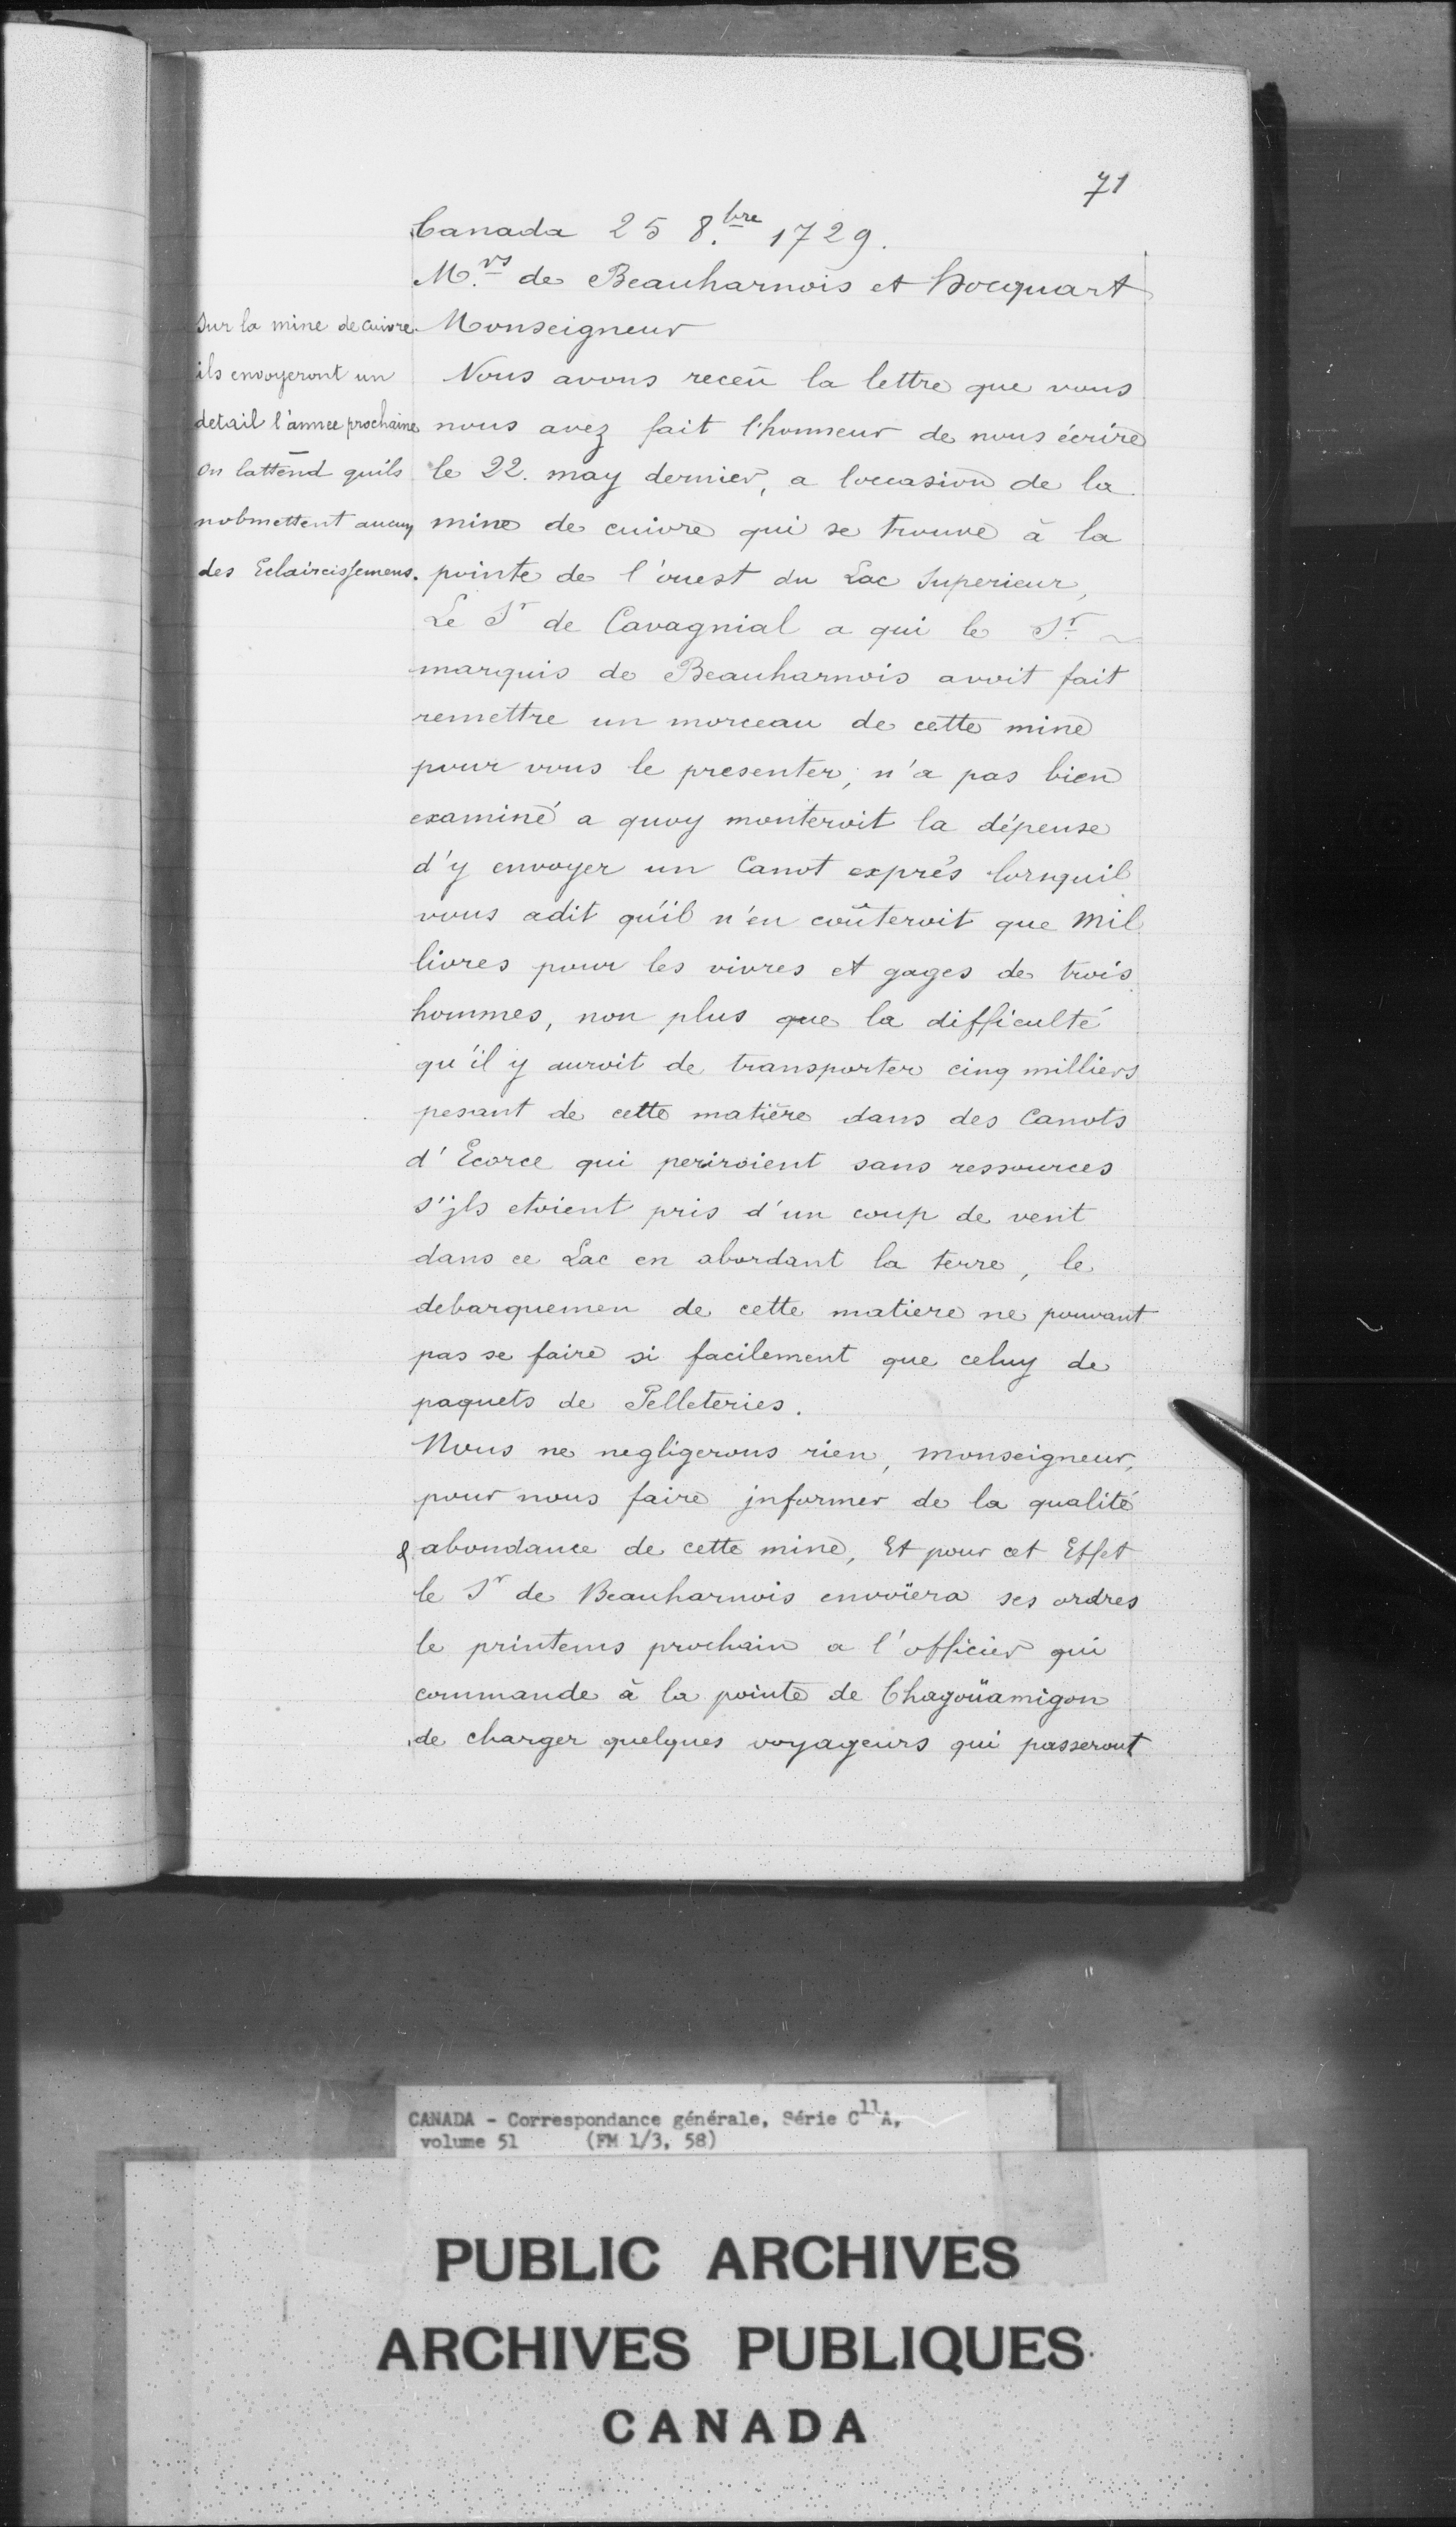 71
Canada 25 8.bre 1729.
M.rs de Beauharnois et hocquart
Sur la mine de cuivre.
ils envoyeront un
detail l'annee prochaine
on lattend quils
nobmettent aucun
des Eclaircissemens.
Monseigneur
Nous avons receü la lettre que vous
nous avez fait l'honneur de nous écrire
le 22. may dernier, a loccasion de la
mine de cuivre qui se trouve à la
pointe de l'ouest du Lac Superieur,
Le Sr de Cavagnial a qui le Sr. ~
marquis de Beauharnois avoit fait
remettre un morceau de cette mine
pour vous le presenter, n'a pas bien
examiné a quoy monteroit la dépense
d'y envoyer un Canot exprés lorsquil
vous adit qu'il n'en coûteroit que Mil
livres pour les vivres et gages de trois
hommes, non plus que la difficulté
qu'il y auroit de transporter cinq milliers
pesant de cette matière dans des Canots
d'Ecorce qui periroient sans ressources
s'jls etoient pris d'un coup de vent
dans ce Lac en abordant la terre, le
debarquemen de cette matiere ne pouvant
pas se faire si facilement que celuy de
paquets de Pelleteries.
Nous ne negligerons rien, monseigneur,
pour nous faire jnformer de la qualité
& abondance de cette mine, Et pour cet Effet
le Sr de Beauharnois envoïera ses ordres
le printems prochain a l'officier qui
commande à la pointe de Chagoüamigon
de charger quelques voyageurs qui passeront
CANADA - Correspondance générale, Série C11A,
volume 51 (FM 1/3, 58)
PUBLIC ARCHIVES
ARCHIVES PUBLIQUES
CANADA